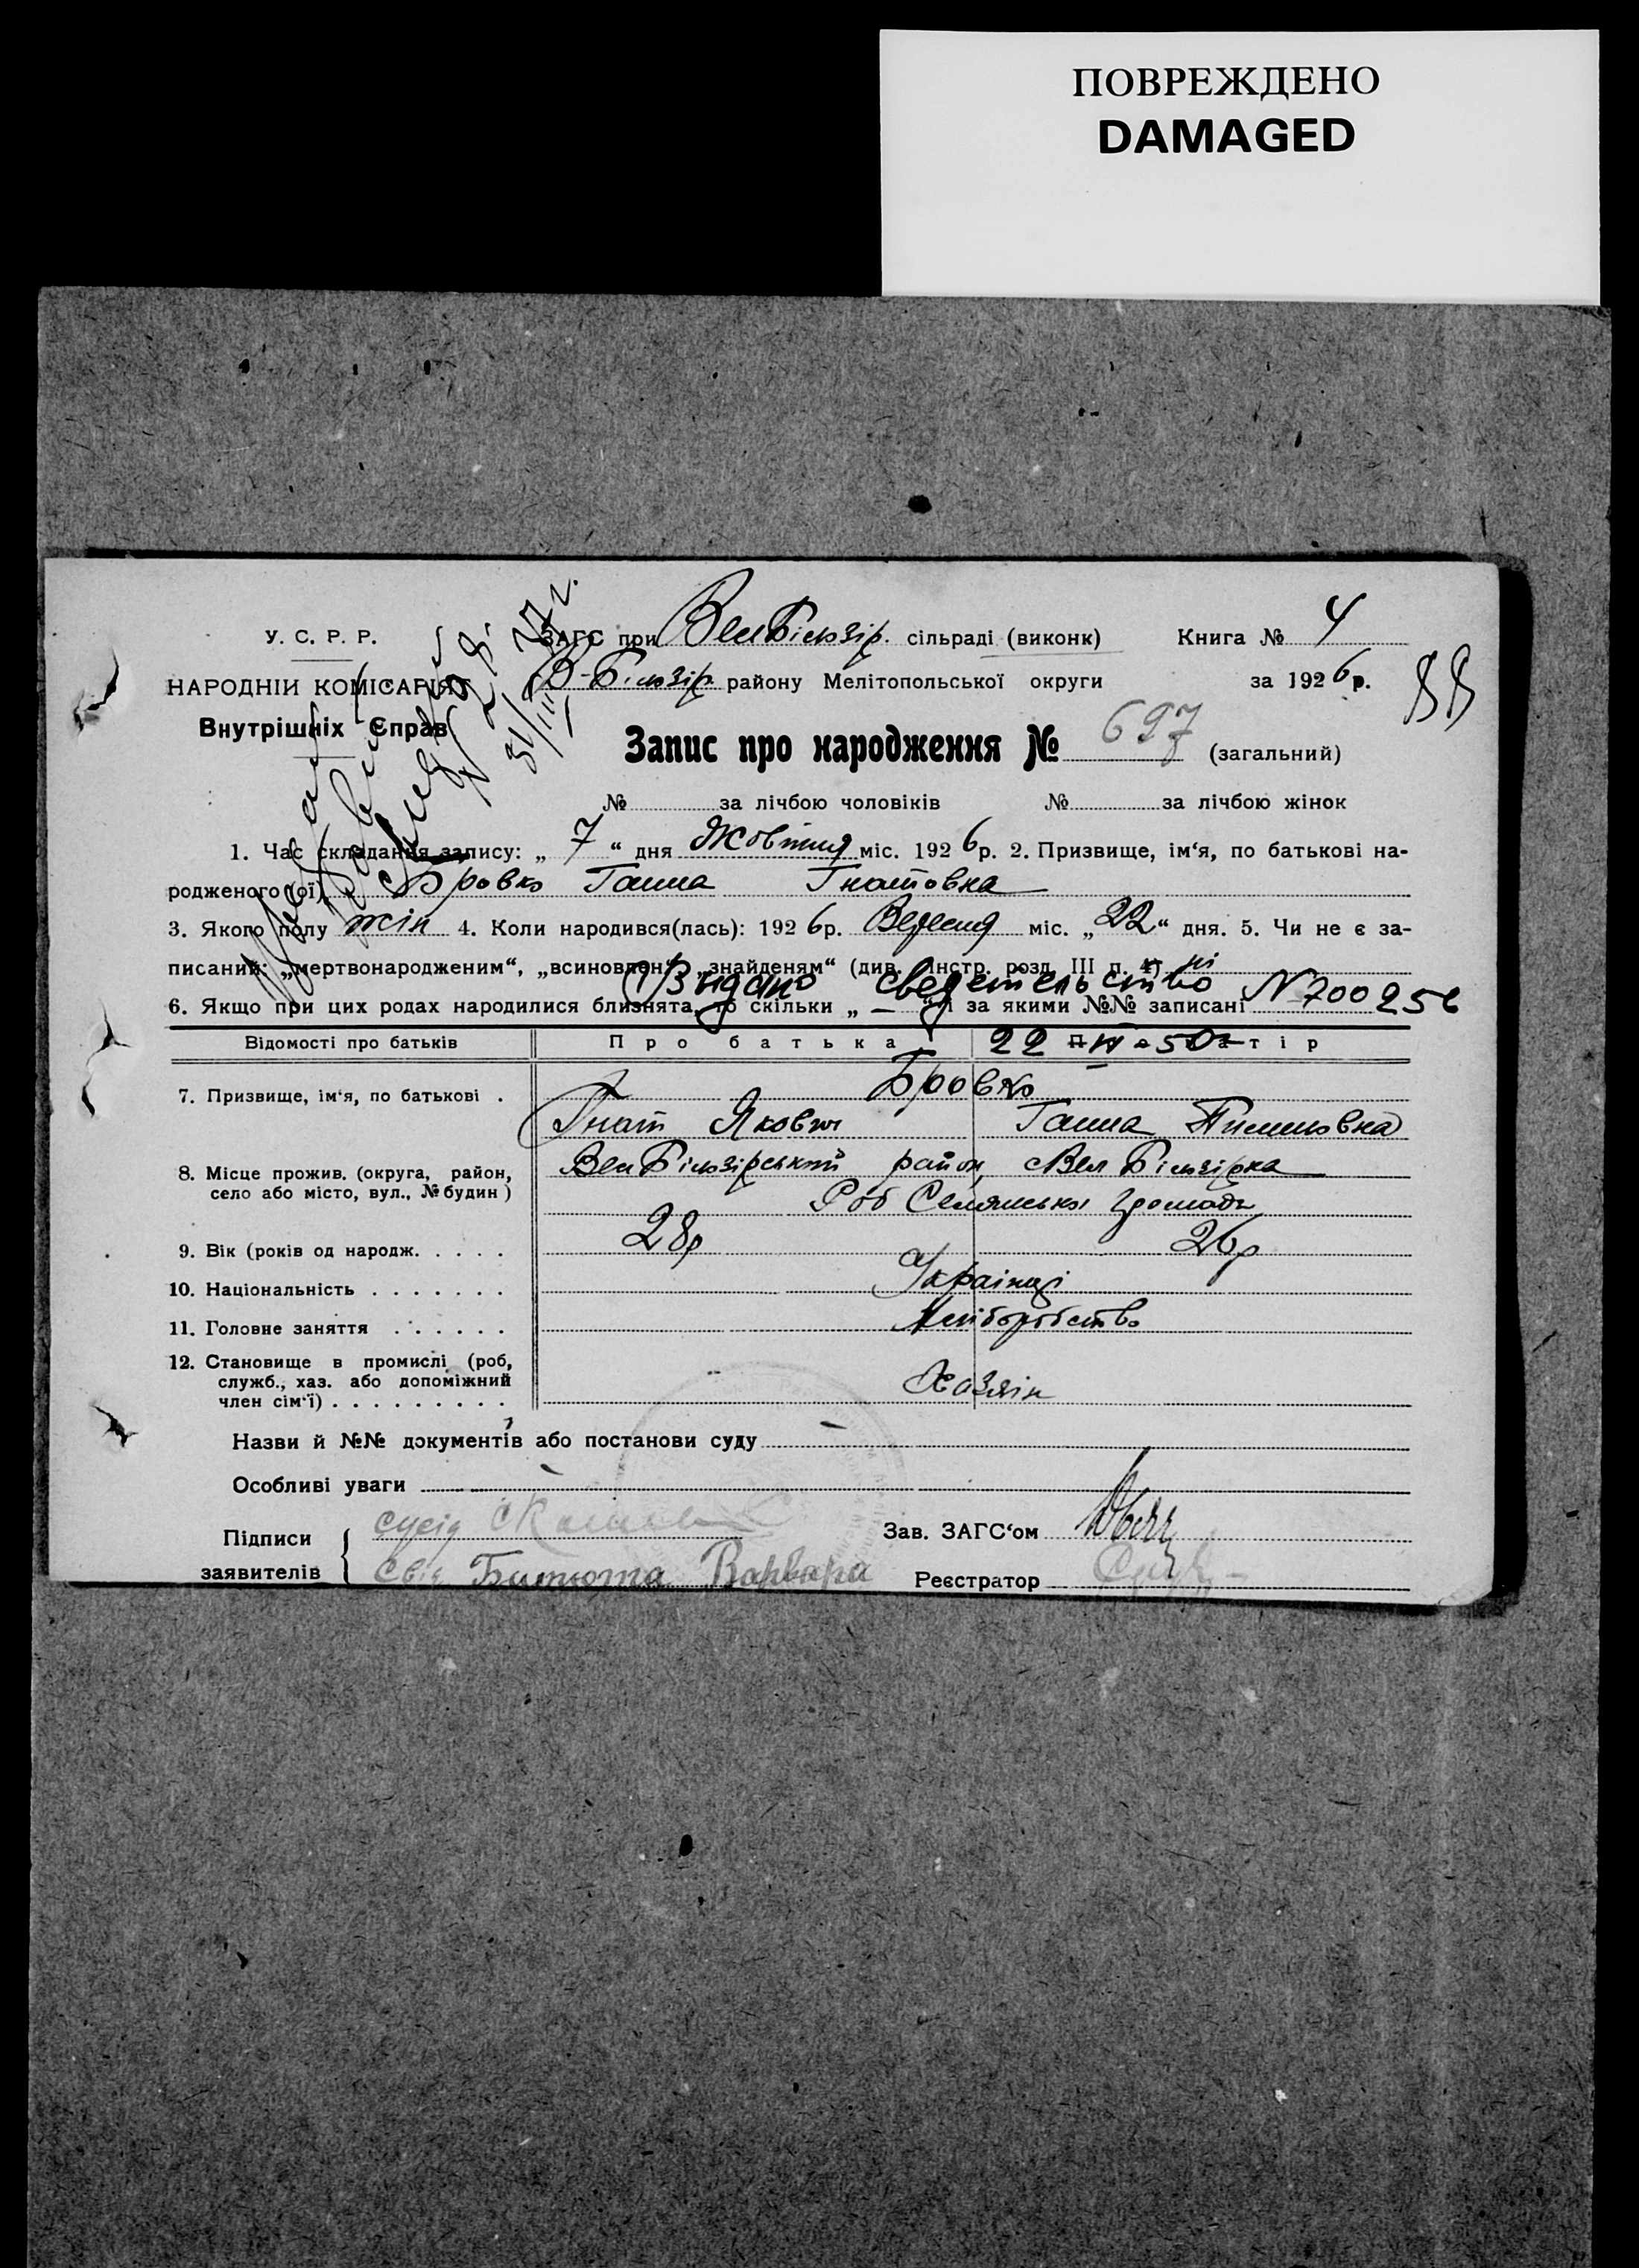 ПОВРЕЖДЕНО
DAMAGED
У. С. Р. Р.
НАРОДНІЙ КОМІСАРІЯТ
Внутрішніх Справ
ЗАГС при ВелБілозір. сільраді (виконк) Книга № 4
В-Білозір району Мелітопольської округи за 1926р.
88
Запис про народження № 697 (загальний)
№ за лічбою чоловіків № за лічбою жінок
1. Час складання запису: „ 7 “ дня Жовтня міс. 1926р. 2. Призвище, ім‘я, по батькові на-
родженого (ої) Бровко Ганна Гнатовна
3. Якого полу жін 4. Коли народився(лась): 1926р. Вересня міс. „22“ дня. 5. Чи не є за-
писаний: „мертвонародженим“, „всиновлен“, „знайденям“ (див. Інстр. розд. III п. 4) ні
Видано сведетельство N 700256
6. Якщо при цих родах народилися близнята, то скільки „ — “ і за якими №№ записані
22 50
Відомості про батьків Про батька Про матір
7. Призвище, ім‘я, по батькові . Бровко
Гнат Якович Ганна Тимишовна
8. Місце прожив. (округа, район, ВелБілозірський район, Вел Білозірка
село або місто, вул., № будин) Роб Селянської громади
9. Вік (років од народж. . . . . 28р 26р
10. Національність . . . . . . . Українці
11. Головне заняття . . . . . . Хліборобство
12. Становище в промислі (роб,
служб., хаз. або допоміжний Хазяін
член сім‘ї) . . . . . . . . .
Назви й №№ документів або постанови суду —
Особливі уваги
Підписи сусід Зав. ЗАГС‘ом
заявителів Свід Варвара Реєстратор